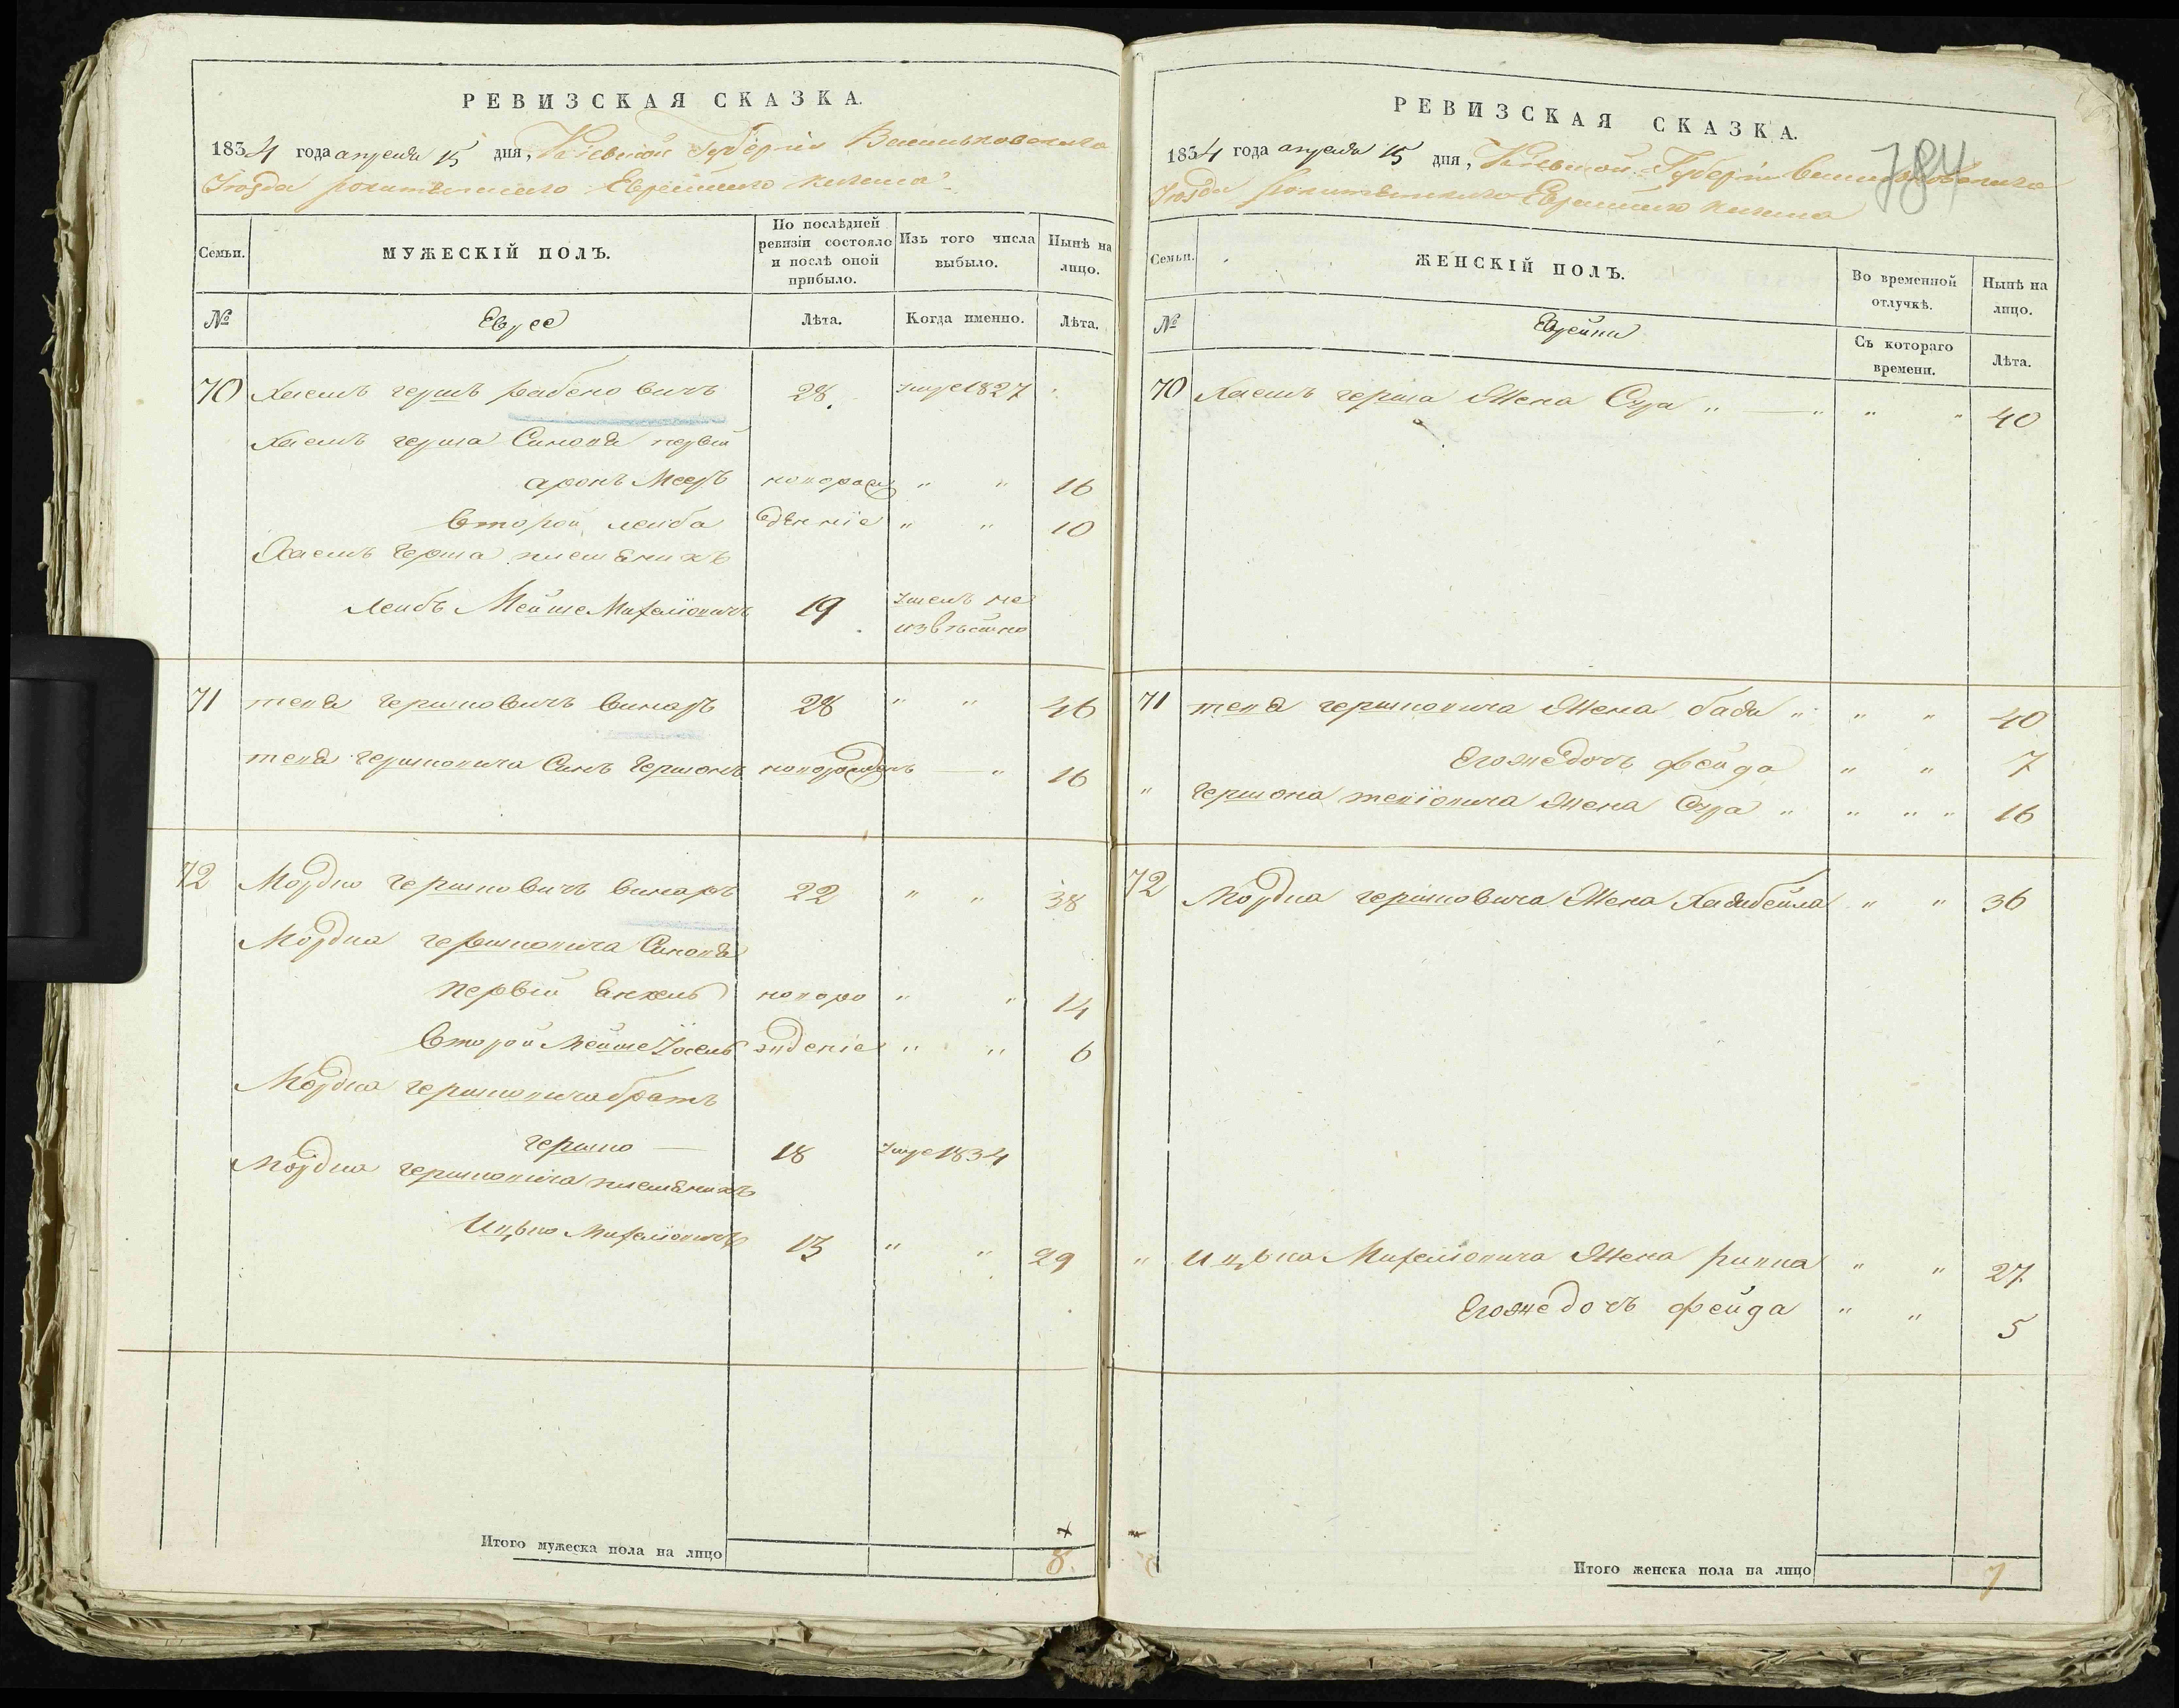 РЕВИЗСКАЯ СКАЗКА.
1834 года апреля 15 дня, Кіевской Губерніи Васильковскаго
Уезда рокитянскаго Еврейского кагала
Семьи.
МУЖЕСКІЙ ПОЛЪ.
По послѣдней ревизіи состояло и послѣ оной прибыло.
Изъ того числа выбыло.
Нынѣ на лицо.
№
Еврее
Лѣта.
Когда именно.
Лѣта.
70 Хаемъ гершъ рабеновичъ 28. умре 1827
Хаемъ герша Синовя первій
аронъ Мееръ новорож " " 16
Второй лейба дѣнніе " " 10
Хаемъ Герша племѣникъ
Лейбъ Мейше 19 неизвѣстно
71 тевя гершковичъ винаръ 28 " " 46
тевя гершковича Синъ Гершонъ новорожденъ — " 16
72 Мордко гершковичъ винаръ 22 " " 38
Мордка гершковича Синовя
Первій Янкель новоро " " 14
Второй Мейше ждѣніе " " 6
Мордка гершковича братъ
гершко — 18 умре 1834
Мордка гершковича племѣникъ
Ицько 13 " " 29
Итого мужеска пола на лицо 8.
РЕВИЗСКАЯ СКАЗКА.
784
1834 года апреля 15 дня, Кіевской Губерніи Васильковскаго
Уезда рокитянскаго Еврейского кагала
Семьи.
ЖЕНСКІЙ ПОЛЪ.
Во временной отлучкѣ.
Нынѣ на лицо.
№
Еврейки
Съ котораго времени.
Лѣта.
70 Хаемъ герша Жена Сура " — " " " 40
71 тевя гершковича Жена бася " " " 40
Егожедочъ фейга " " 7
" гершона тевіовича Жена Сура " " " " 16
72 Мордка гершковича Жена Хаябейла " " 36
" Ицька Жена ривка " " 27
Егожедочъ фейга " " 5
Итого женска пола на лицо 7